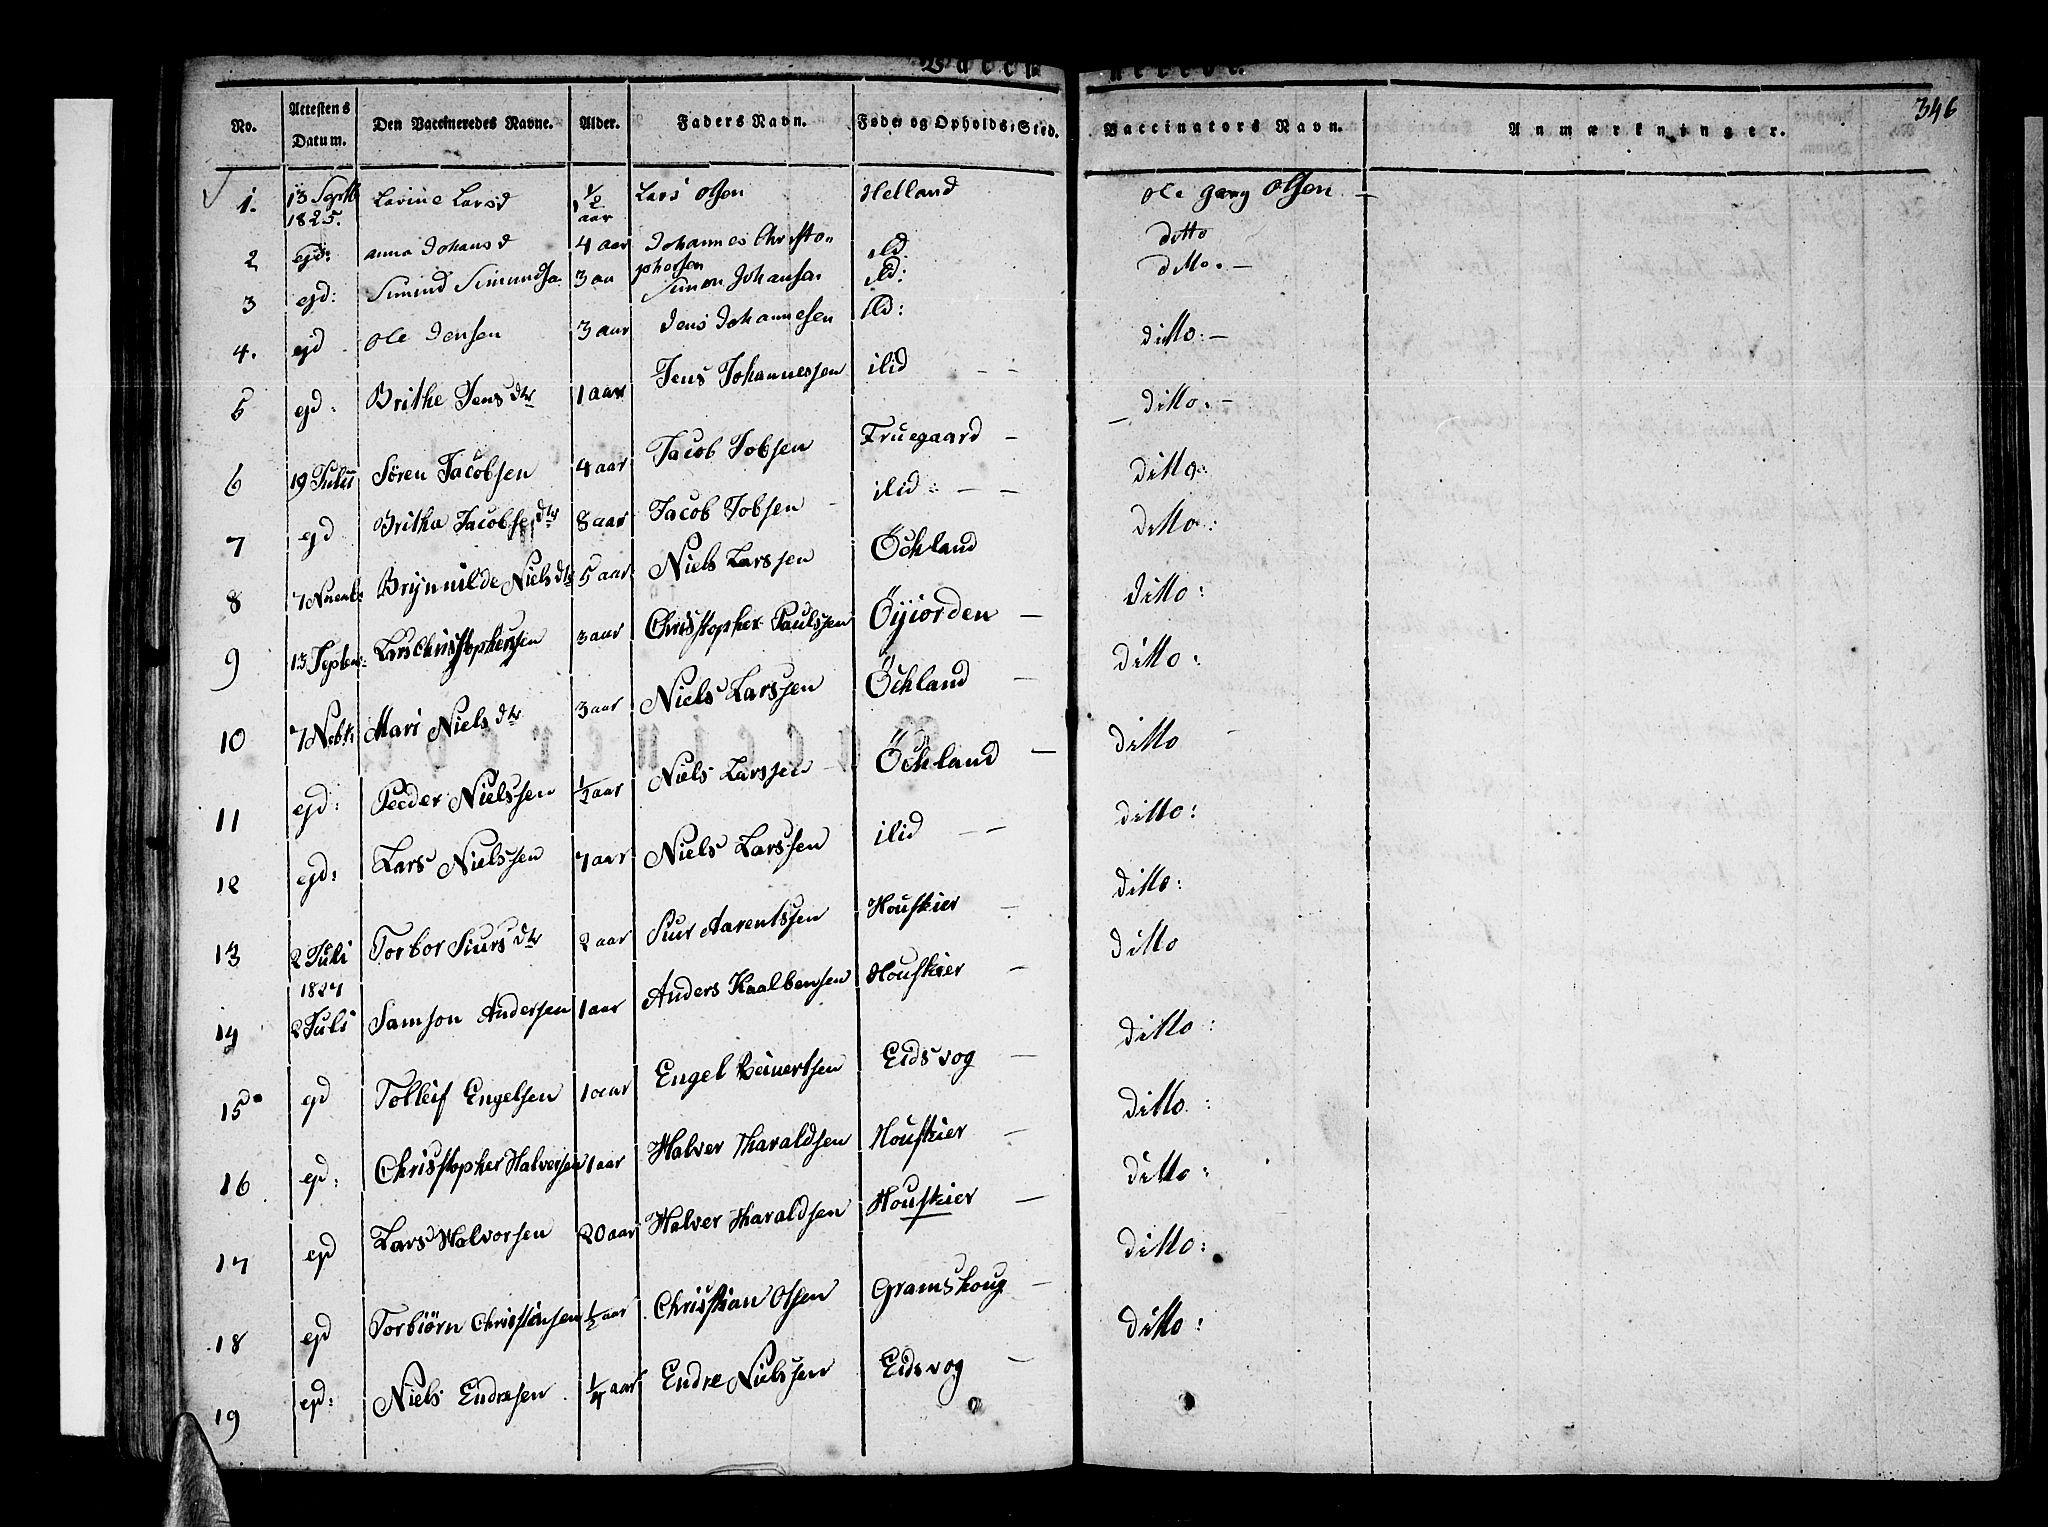 346
No. Attestens Datum. Den Vaccineredes Navne. Alder. Faders Navn. Føde- og Opholds-Sted. Vaccinators Navn. Anmærkninger.
1. 13 Septb 1825. Larine Larsd 1/2 aar Lars Olsen Helland Ole Olsen
2 ejd: Anna Johansd 4 aar Johannes Christophersen ild. ditto
3 ejd: Simund 3 aar Simon Johansen ild: ditto. —
4. ejd Ole Jensen 3 aar Jens Johannesen ild: ditto: —
5 ejd: Brithe Jens dtr 1 aar Jens Johannessen ilid - - ditto. —
6 19 Julii Søren Jacobsen 4 aar Jacob Jobsen Fruegaard — ditto
7 ejd Britha Jacobse dtr 8 aar Jacob Jobsen ilid: — — ditto:
8 Brynnilde Niels dtr 5 aar Niels Larssen Öckland ditto:
9 13 Septem: Lars Christophersen 3 aar Christopher Paulssen Öyiorden — ditto:
10 7 Nobr: Mari Niels dtr 3 aar Niels Larssen Öckland — ditto
11 ejd: Peeder Nielssen 1/2 aar Niels Larssen Öckland — ditto:
12 ejd: Lars Nielssen 7 aar Niels Larssen ilid — — ditto:
13 2 Juli Torbor Siurs dtr 2 aar Siur Aarentssen Houskier — ditto
1827
14 2 Juli Samson Andersen 1 aar Anders Kaalbensen Houskier — ditto:
15 ejd Tolleif Engelsen 1 aar Engel Reinertsen Eidsvog — ditto:
16 ejd: Christopher Halversen 1 aar Halver Tharaldsen Houskier — ditto:
17 ejd Lars Halvorsen 20 aar Halver Tharaldsen Houskier — ditto:
18 ejd Torbiørn Christiensen 1/2 aar Christian Olsen Gramshoug — ditto:
19 ejd: Niels Endresen 1/4 aar Endre Nielssen Eidsvog —